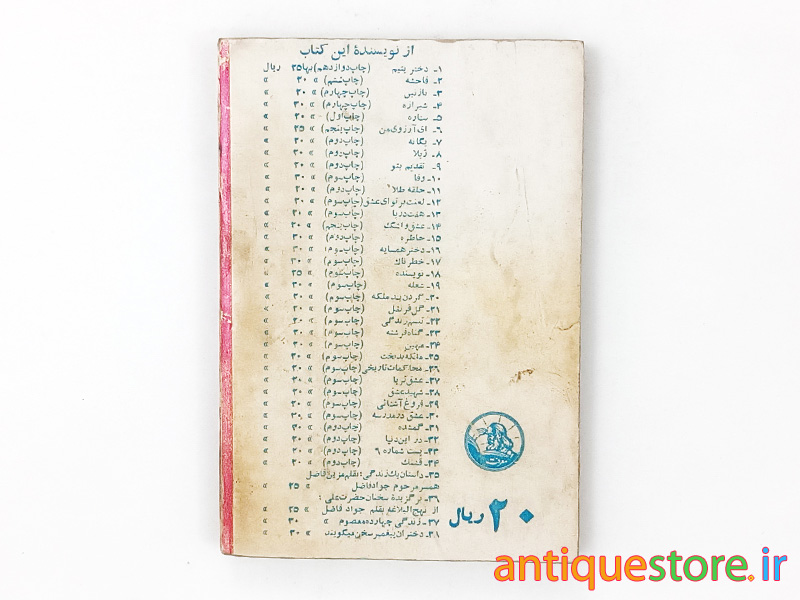 از نویسندهٔ این کتاب
۱ـ دختر یتیم (چاپ دوازدهم) بها ۳۵ ریال
۲ـ فاحشه (چاپ ششم) » ۳۰ »
۳ـ نازنین (چاپ چهارم) » ۲۰ »
۴ـ شیرازه (چاپ چهارم) » ۳۰ »
۵ـ ستاره (چاپ اول) » ۲۰ »
۶ـ ای آرزوی من (چاپ پنجم) » ۲۵ »
۷ـ یگانه (چاپ دوم) » ۲۰ »
۸ـ ژیلا (چاپ دوم) » ۳۰ »
۹ـ تقدیم بتو (چاپ دوم) » ۲۰ »
۱۰ـ وفا (چاپ سوم) » ۳۰ »
۱۱ـ حلقه طلا (چاپ دوم) » ۲۰ »
۱۲ـ لعنت بر تو ای عشق (چاپ سوم) » ۳۰ »
۱۳ـ هفت دریا (چاپ سوم) » ۳۰ »
۱۴ـ عشق و اشک (چاپ پنجم) » ۲۰ »
۱۵ـ خاطره (چاپ دوم) » ۳۰ »
۱۶ـ دختر همسایه (چاپ سوم) » ۳۰ »
۱۷ـ خطرناک (چاپ سوم) » ۳۰ »
۱۸ـ نویسنده (چاپ سوم) » ۲۵ »
۱۹ـ شعله (چاپ سوم) » ۳۰ »
۲۰ـ گردن بند ملکه (چاپ سوم) » ۳۰ »
۲۱ـ گل قرنفل (چاپ سوم) » ۳۰ »
۲۲ـ تبسم زندگی (چاپ سوم) » ۳۰ »
۲۳ـ گناه فرشته (چاپ سوم) » ۳۰ »
۲۴ـ مهین (چاپ سوم) » ۳۰ »
۲۵ـ ملکه بدبخت (چاپ سوم) » ۳۰ »
۲۶ـ محاکمات تاریخی (چاپ سوم) » ۳۰ »
۲۷ـ عشق ثریا (چاپ سوم) » ۳۰ »
۲۸ـ شهید عشق (چاپ سوم) » ۳۰ »
۲۹ـ فروغ آشنائی (چاپ سوم) » ۳۰ »
۳۰ـ عشق در مدرسه (چاپ سوم) » ۳۰ »
۳۱ـ گمشده (چاپ دوم) » ۳۰ »
۳۲ـ در این دنیا (چاپ دوم) » ۲۰ »
۳۳ـ پست شماره ۶ (چاپ دوم) » ۳۰ »
۳۴ـ قشنگ (چاپ دوم) » ۲۰ »
۳۵ـ داستان یک زندگی: بقلم مزین فاضل
همسر مرحوم جواد فاضل » ۲۵ »
۳۶ـ برگزیدهٔ سخنان حضرت علی:
از نهج البلاغه بقلم جواد فاضل » ۲۵ »
۳۷ـ زندگی چهارده معصوم » ۳۰ »
۳۸ـ دختران پیغمبر سخن میگویند » ۳۰ »
۲۰ ریال
antiquestore.ir